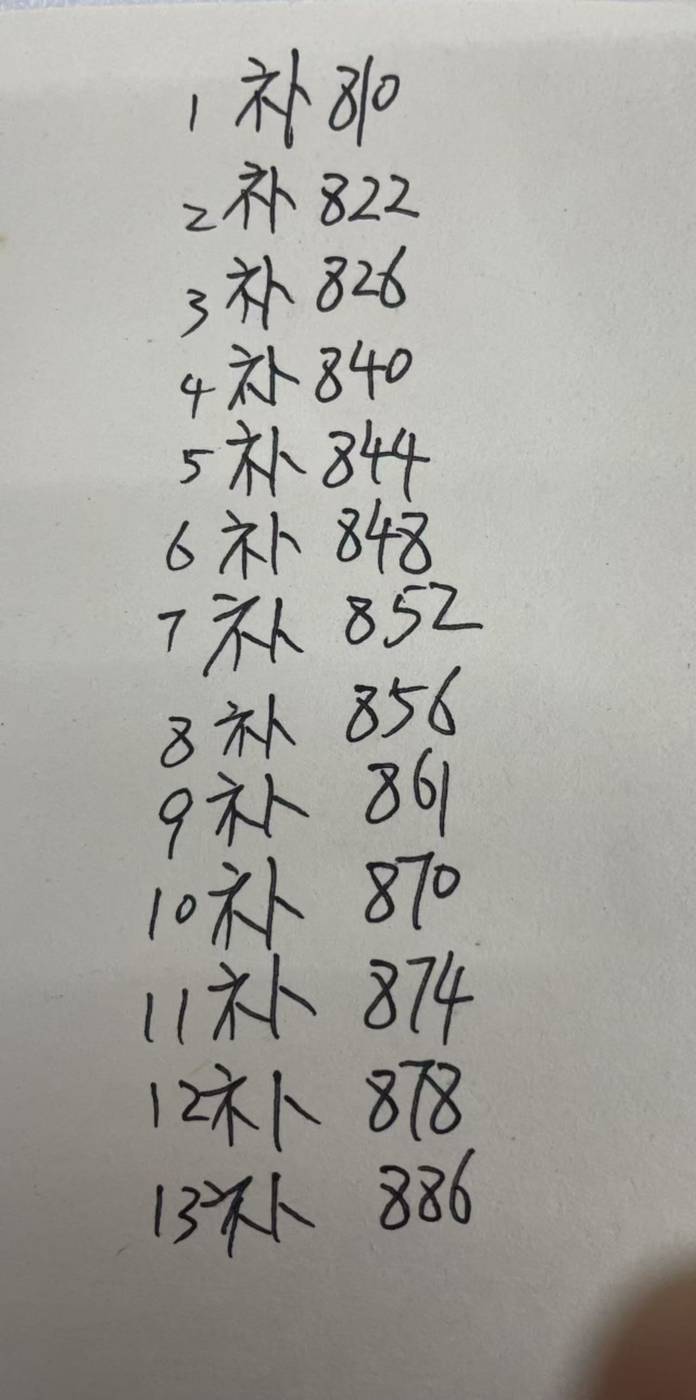 1 补 810
2 补 822
3 补 826
4 补 840
5 补 844
6 补 848
7 补 852
8 补 856
9 补 861
10 补 870
11 补 874
12 补 878
13 补 886